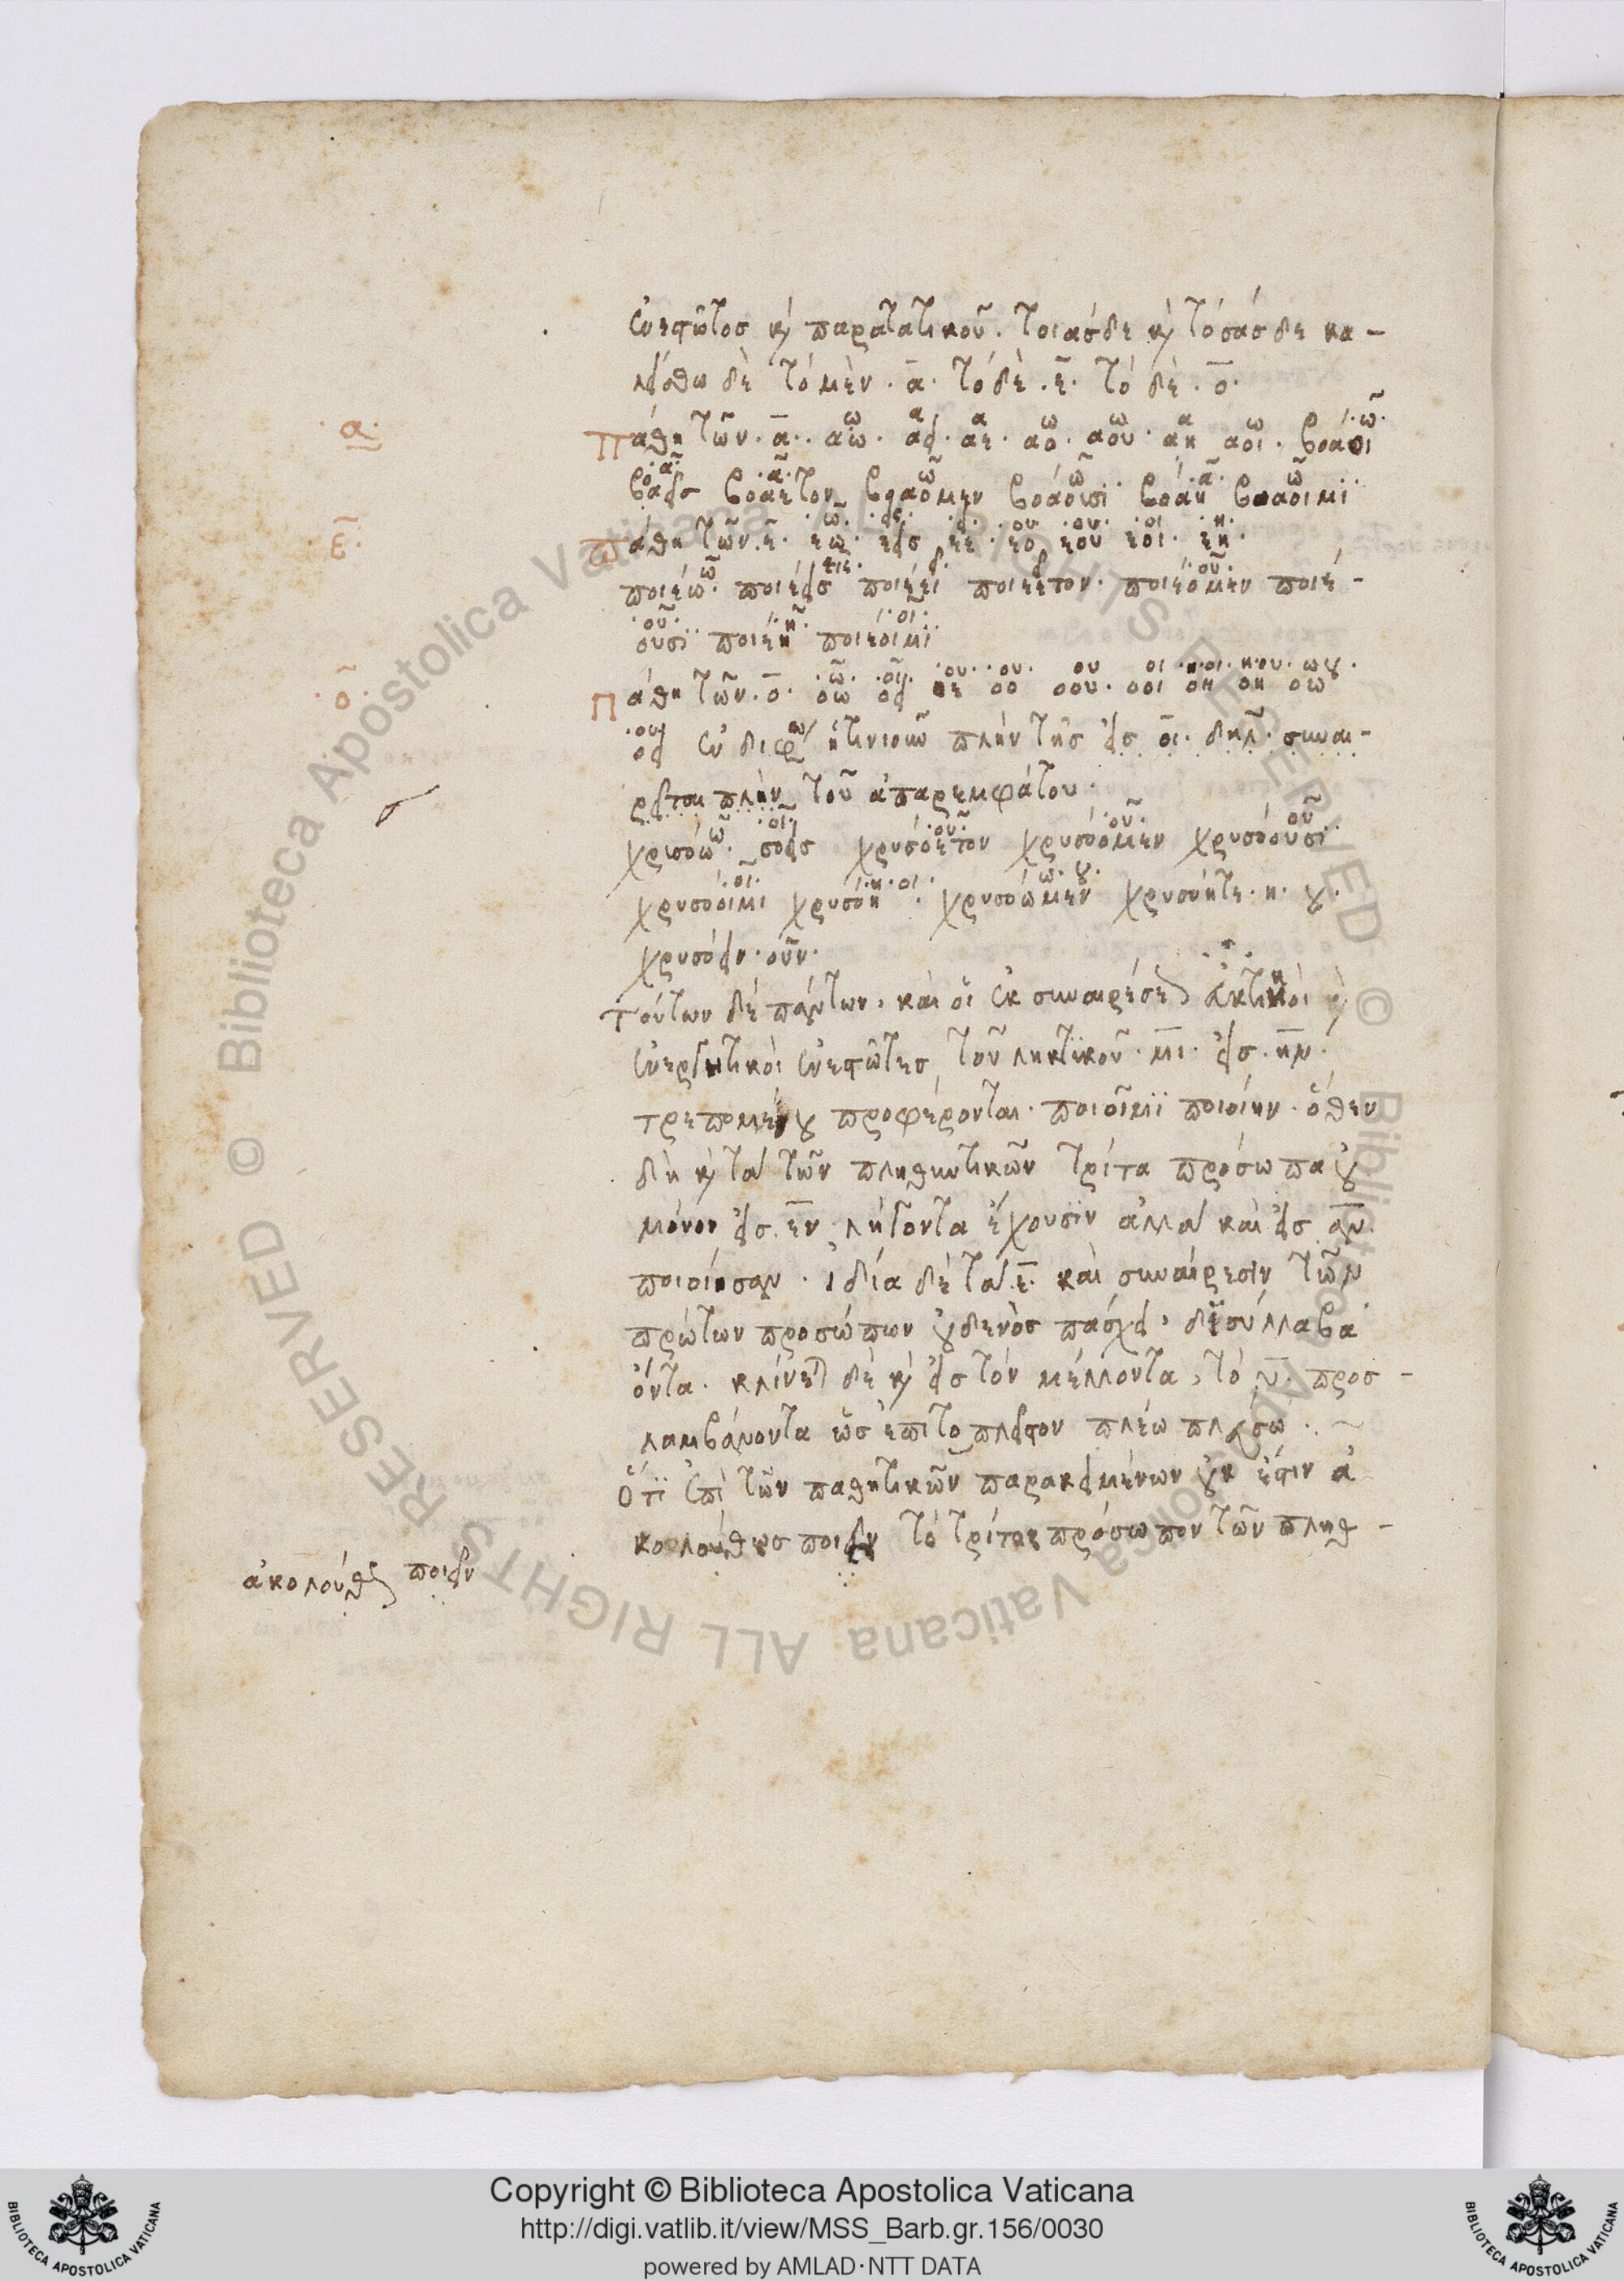 ἐνεστῶτος κ παρατατικοῦ. τοιάσδε κ τόσάσδε κα-
λείσθω δὲ τὸ μὲν. α. τὸ δὲ. ε. τὸ δὲ. ο.
α
πάθη τῶν. α.. αω. αει. αε. αο. αου. αη αοι. βοάοι
βοάεις βοάετον βοάομεν βοάουσι βοάη βοάοιμι
ε
πάθη τῶν. ε. εω. εεις εε. εο εου εοι. εη.
ποιέω. ποιέεις ποιέει ποιέετον. ποιέομεν ποιέ-
ουσι ποιέη ποιέοιμι
ο
πάθη τῶν. ο. οω οει οε οο οου. οοι οη οη οω
πλὴν τῆς εις οι. δηλ. συναι-
ρεῖται πλὴν τοῦ ἀπαρεμφάτου.
χρυσόω. σόεις χρυσόετον χρυσόομεν χρυσόουσι
χρυσόοιμι χρυσόη. χρυσόωμεν χρυσόητε. η. ου.
χρυσόειν. οῦν.
τούτων δὲ πάντων. καὶ οἱ ἐκ συναιρέσεως κ
ἐνεργητικοὶ ἐνεστῶτες τοῦ ληκτικοῦ. μι. εἰς. ην.
τρεπομένου προφέρονται. ποιοῖμι ποιοίην. ὅθεν
δὴ κ τὰ τῶν πληθυντικῶν τρίτα πρόσωπα οὐ
μόνον εἰς. εν. λήγοντα ἔχουσιν ἀλλὰ καὶ εἰς αν.
ποιοίησαν. ἰδία δὲ τὰ. ε. καὶ συναίρεσιν τῶν
πρώτων προσώπων οὐδενὸς πάσχει. δισύλλαβα
ὄντα. κλίνεται δὲ κ εἰς τὸν μέλλοντα, τὸ υ. προσ-
λαμβάνοντα ὡς ἐπὶ τὸ πλεῖστον πλέω πλεύσω.
Ὅτι ἐπὶ τῶν παθητικῶν παρακειμένων οὐκ ἔστιν ἀ
κολούθως ποιεῖν τὸ τρίτον πρόσωπον τῶν πληθ-
ἀκολούθως ποιεῖν
Copyright © Biblioteca Apostolica Vaticana
http://digi.vatlib.it/view/MSS_Barb.gr.156/0030
powered by AMLAD·NTT DATA
BIBLIOTECA APOSTOLICA VATICANA
BIBLIOTECA APOSTOLICA VATICANA
© Biblioteca Apostolica Vaticana ALL RIGHTS RESERVED © Biblioteca Apostolica Vaticana ALL RIGHTS RESERVED